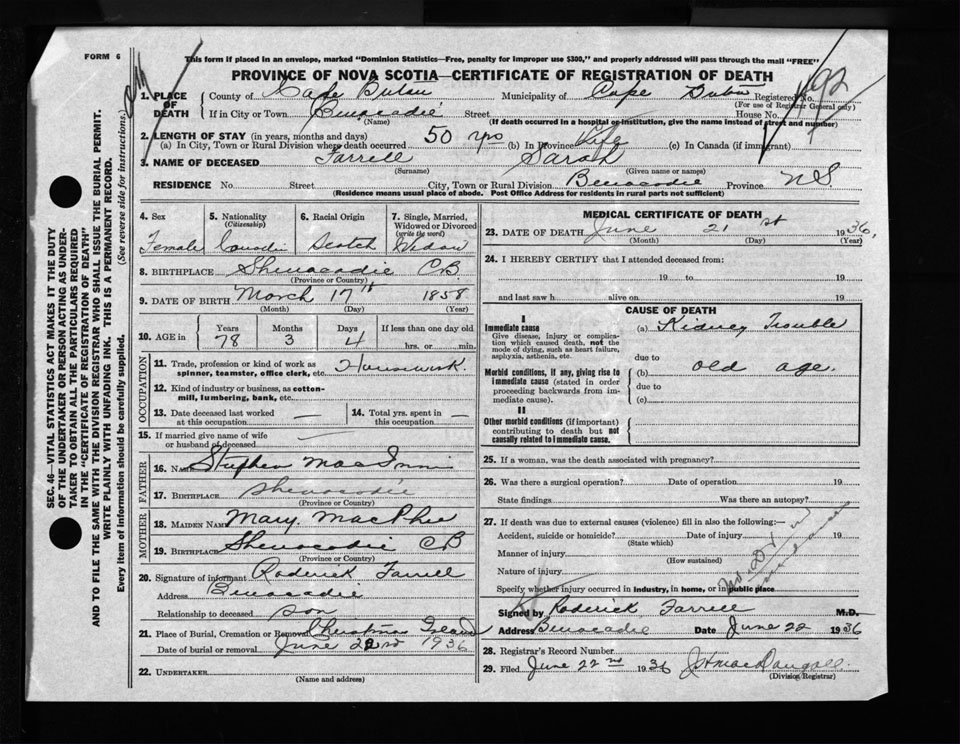 FORM 6
This form if placed in an envelope, marked "Dominion Statistics—Free, penalty for improper use $300," and properly addressed will pass through the mail "FREE"
PROVINCE OF NOVA SCOTIA—CERTIFICATE OF REGISTRATION OF DEATH
1. PLACE OF DEATH
County of Cape Breton Municipality of Cape Breton Registered No.
(For use of Registrar General only)
If in City or Town Benacadie Street House No.
(Name) (If death occurred in a hospital or institution, give the name instead of street and number)
2. LENGTH OF STAY (in years, months and days)
(a) In City, Town or Rural Division where death occurred 50 yrs (b) In Province Life (c) In Canada (if immigrant)
3. NAME OF DECEASED Farrell Sarah
(Surname) (Given name or names)
RESIDENCE No. Street City, Town or Rural Division Benacadie Province N.S.
(Residence means usual place of abode. Post Office Address for residents in rural parts not sufficient)
4. Sex Female
5. Nationality (Citizenship)
6. Racial Origin Scotch
7. Single, Married, Widowed or Divorced (write the word) Widow
8. BIRTHPLACE Shenacadie C.B.
(Province or Country)
9. DATE OF BIRTH March 17th 1858
(Month) (Day) (Year)
10. AGE in Years 78 Months 3 Days 4 If less than one day old hrs. or min.
OCCUPATION
11. Trade, profession or kind of work as spinner, teamster, office clerk, etc. Housework.
12. Kind of industry or business, as cotton-mill, lumbering, bank, etc.
13. Date deceased last worked at this occupation —
14. Total yrs. spent in this occupation —
15. If married give name of wife or husband of deceased —
FATHER
16. Name Stephen MacInnis
17. BIRTHPLACE Shenacadie
(Province or Country)
MOTHER
18. MAIDEN NAME Mary MacPhee
19. BIRTHPLACE Shenacadie CB
(Province or Country)
20. Signature of informant Roderick Farrell
Address Benacadie
Relationship to deceased son
21. Place of Burial, Cremation or Removal
Date of burial or removal June 22nd 1936
22. UNDERTAKER
(Name and address)
MEDICAL CERTIFICATE OF DEATH
23. DATE OF DEATH June 21st 1936,
(Month) (Day) (Year)
24. I HEREBY CERTIFY that I attended deceased from:
19 to 19
and last saw h alive on 19
CAUSE OF DEATH
I
Immediate cause
Give disease, injury or complication which caused death, not the mode of dying, such as heart failure, asphyxia, asthenia, etc.
(a) Kidney Trouble
due to
Morbid conditions, if any, giving rise to immediate cause (stated in order proceeding backwards from immediate cause).
(b) old age.
due to
(c)
II
Other morbid conditions (if important) contributing to death but not causally related to immediate cause.
25. If a woman, was the death associated with pregnancy?
26. Was there a surgical operation? Date of operation 19
State findings Was there an autopsy?
27. If death was due to external causes (violence) fill in also the following:—
Accident, suicide or homicide? Date of injury 19
(State which)
Manner of injury
(How sustained)
Nature of injury
Specify whether injury occurred in industry, in home, or in public place
Signed by Roderick Farrell M.D.
Address Benacadie Date June 22 1936
28. Registrar's Record Number
29. Filed June 22nd 1936 MacDougall.
(Division Registrar)
SEC. 46—VITAL STATISTICS ACT MAKES IT THE DUTY
OF THE UNDERTAKER OR PERSON ACTING AS UNDER-
TAKER TO OBTAIN ALL THE PARTICULARS REQUIRED
IN THE "CERTIFICATE OF REGISTRATION OF DEATH"
AND TO FILE THE SAME WITH THE DIVISION REGISTRAR WHO SHALL ISSUE THE BURIAL PERMIT.
WRITE PLAINLY WITH UNFADING INK. THIS IS A PERMANENT RECORD.
Every item of information should be carefully supplied. (See reverse side for instructions.)